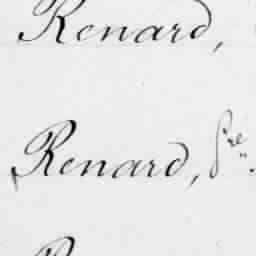 Renard,
Renard, Pre.